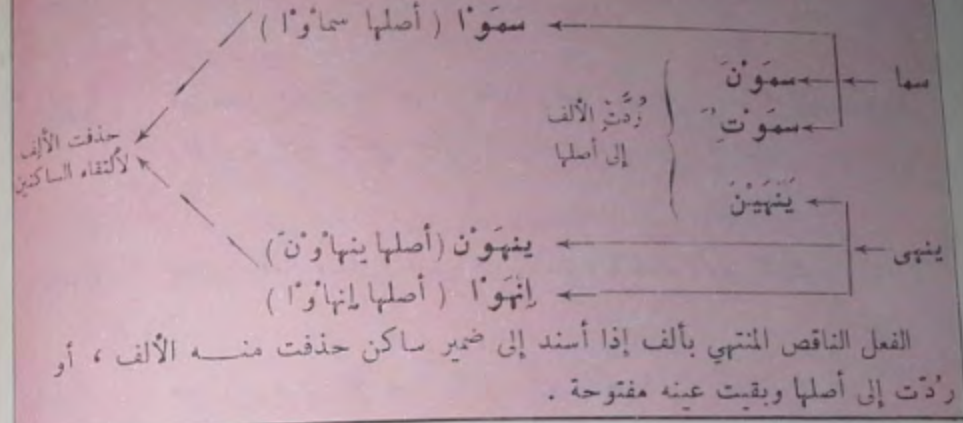 سمَوْا ( أصلها سماوْا )
سما
سمَوْنَ
سمَوْتُِ
رُدَّتْ الألف
إلى أصلها
حذفت الألف
لألتقاء الساكنين
يَنْهَيْنَ
ينهى
ينهَوْن ( أصلها ينهاوْنَ )
إنهَوْا ( أصلها إنهاوْا )
الفعل الناقص المنتهي بألف إذا أسند إلى ضمير ساكن حذفت منه الألف ، أو
رُدّت إلى أصلها وبقيت عينه مفتوحة .